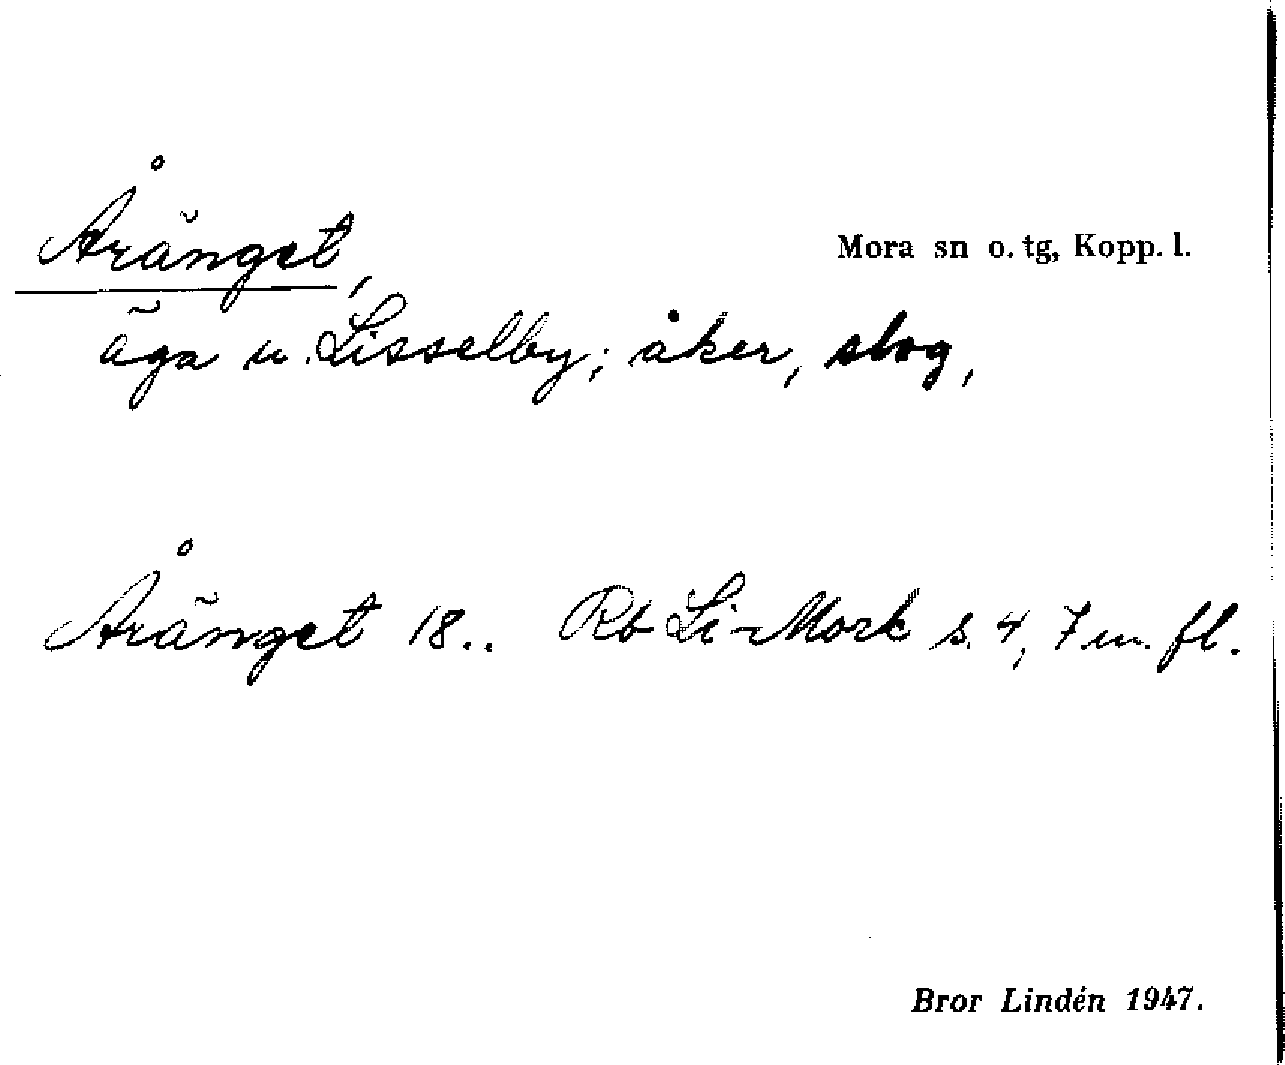 Åränget,
Mora sn o. tg, Kopp. l.
äga u. Lisselby; åker, slog,
Åränget 18.. Rb Li-Mork s. 4, 7 m. fl.
Bror Lindén 1947.